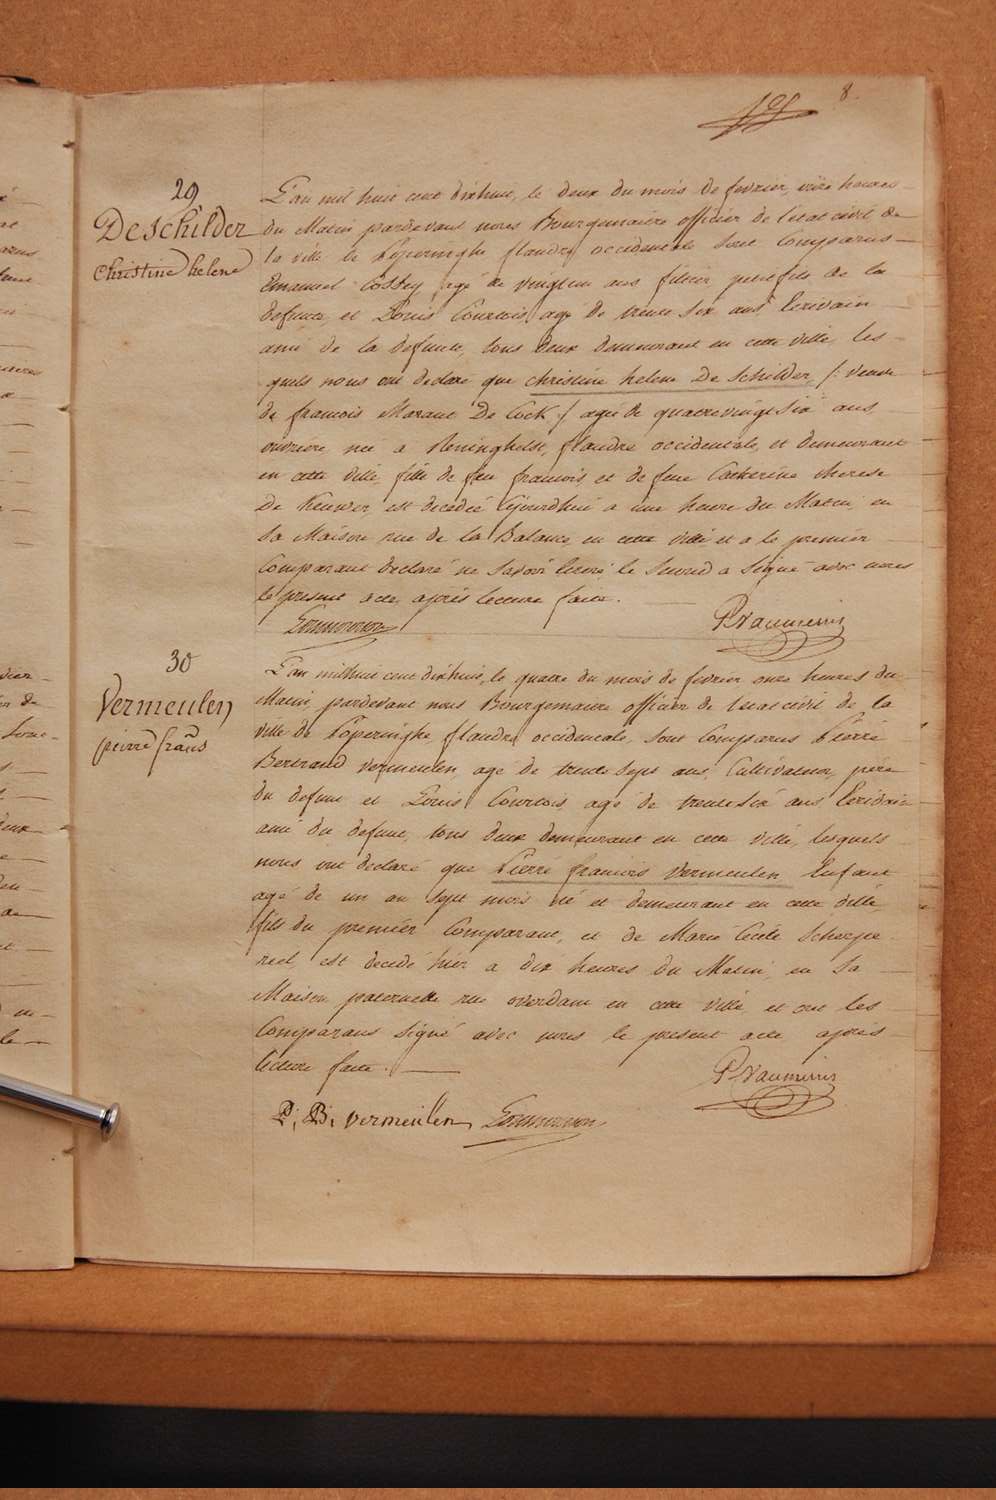 8.
29
De schilder
christine helene
L'an mil huit cent dixhuit, le deux du mois de fevrier, onze heures
du Matin pardevant nous Bourgemaitre officier de l'etat civil de
la ville de Poperinghe flandre occidentale sont Comparus
Emanuel Cossey, agé de vingtun ans filtier petitfils de la
defunte, et Louis Courtois, agé de trente six ans, Ecrivain
ami de la defunte, tous deux demeurant en cette ville, les-
quels nous ont declaré que christine helene De schilder, /: veuve
de francois Marant De Cock :/ agée de quatrevingt six ans
ouvriere née a Reninghelst, flandre occidentale, et demeurant
en cette ville, fille de feu francois et de feue Catherine therese
De Keuwer, est decedée cejourdhui a une heure du Matin, en
sa Maison rue de la Balance, en cette ville et a le premier
Comparant declaré ne savoir Ecrire le second a signé avec nous
le present acte, après lecture faite.
PVanmerris
30
Vermeulen
pierre fran.s
L'an milhuit cent dixhuit, le quatre du mois de fevrier onze heures du
Matin, pardevant nous Bourgemaitre officier de l'etat civil de la
ville de Poperinghe, flandre occidentale, sont Comparus Pierre
Bertrand Vermeulen, agé de trente sept ans, Cultivateur, père
du defunt et Louis Courtois, agé de trente six ans Ecrivain
ami du defunt, tous deux demeurant en cette ville, lesquels
nous ont declaré que Pierre francois Vermeulen, Enfant
agé de un an sept mois né et demeurant en cette ville,
fils du premier Comparant, et de Marie Cecile Scherpe-
reel, est decedé hier a dix heures du Matin, en sa
Maison paternelle rue overdam en cette ville et ont les
Comparans signé avec nous le present acte après
lecture faite.
PVanmerris
P: B: vermeulen